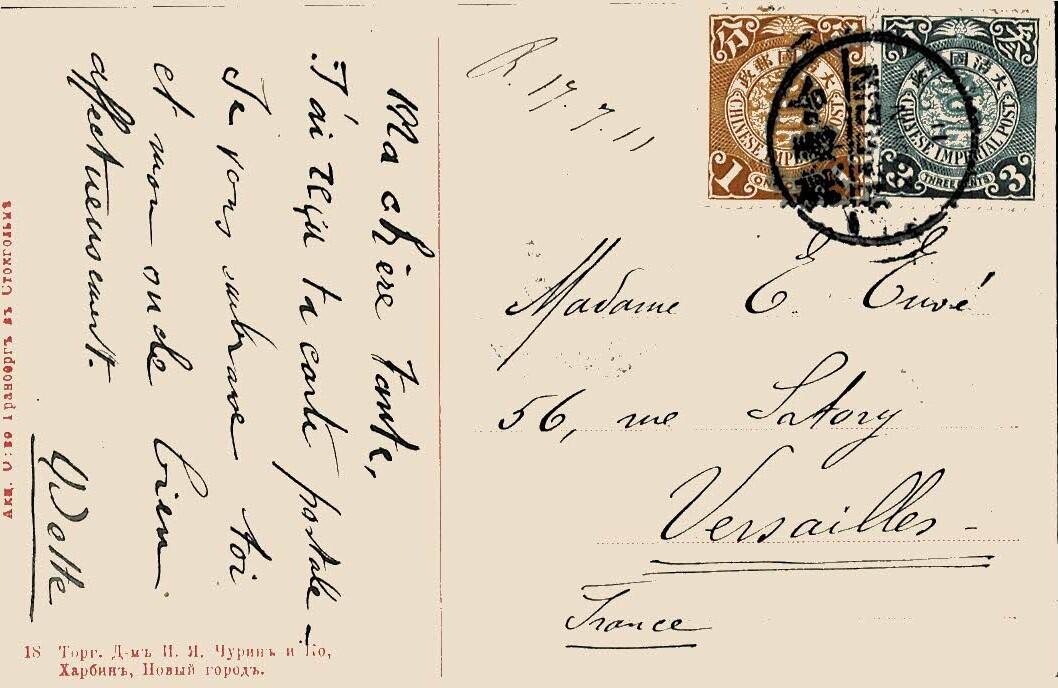 Ma chère tante,
J'ai reçu ta carte postale –
Je vous embrasse toi
et mon oncle bien
affectueusement.
Yvette
R. 17.7.11
分 分
大清國郵政 大清國郵政
CHINESE IMPERIAL POST CHINESE IMPERIAL POST
1 3 THREE CENTS 3
Madame E.
56, rue Satory
Versailles –
France
Акц. О:во Гранбергъ въ Стокгольмѣ
18 Торг. Д-мъ И. Я. Чуринъ и Ко,
Харбинъ, Новый городъ.